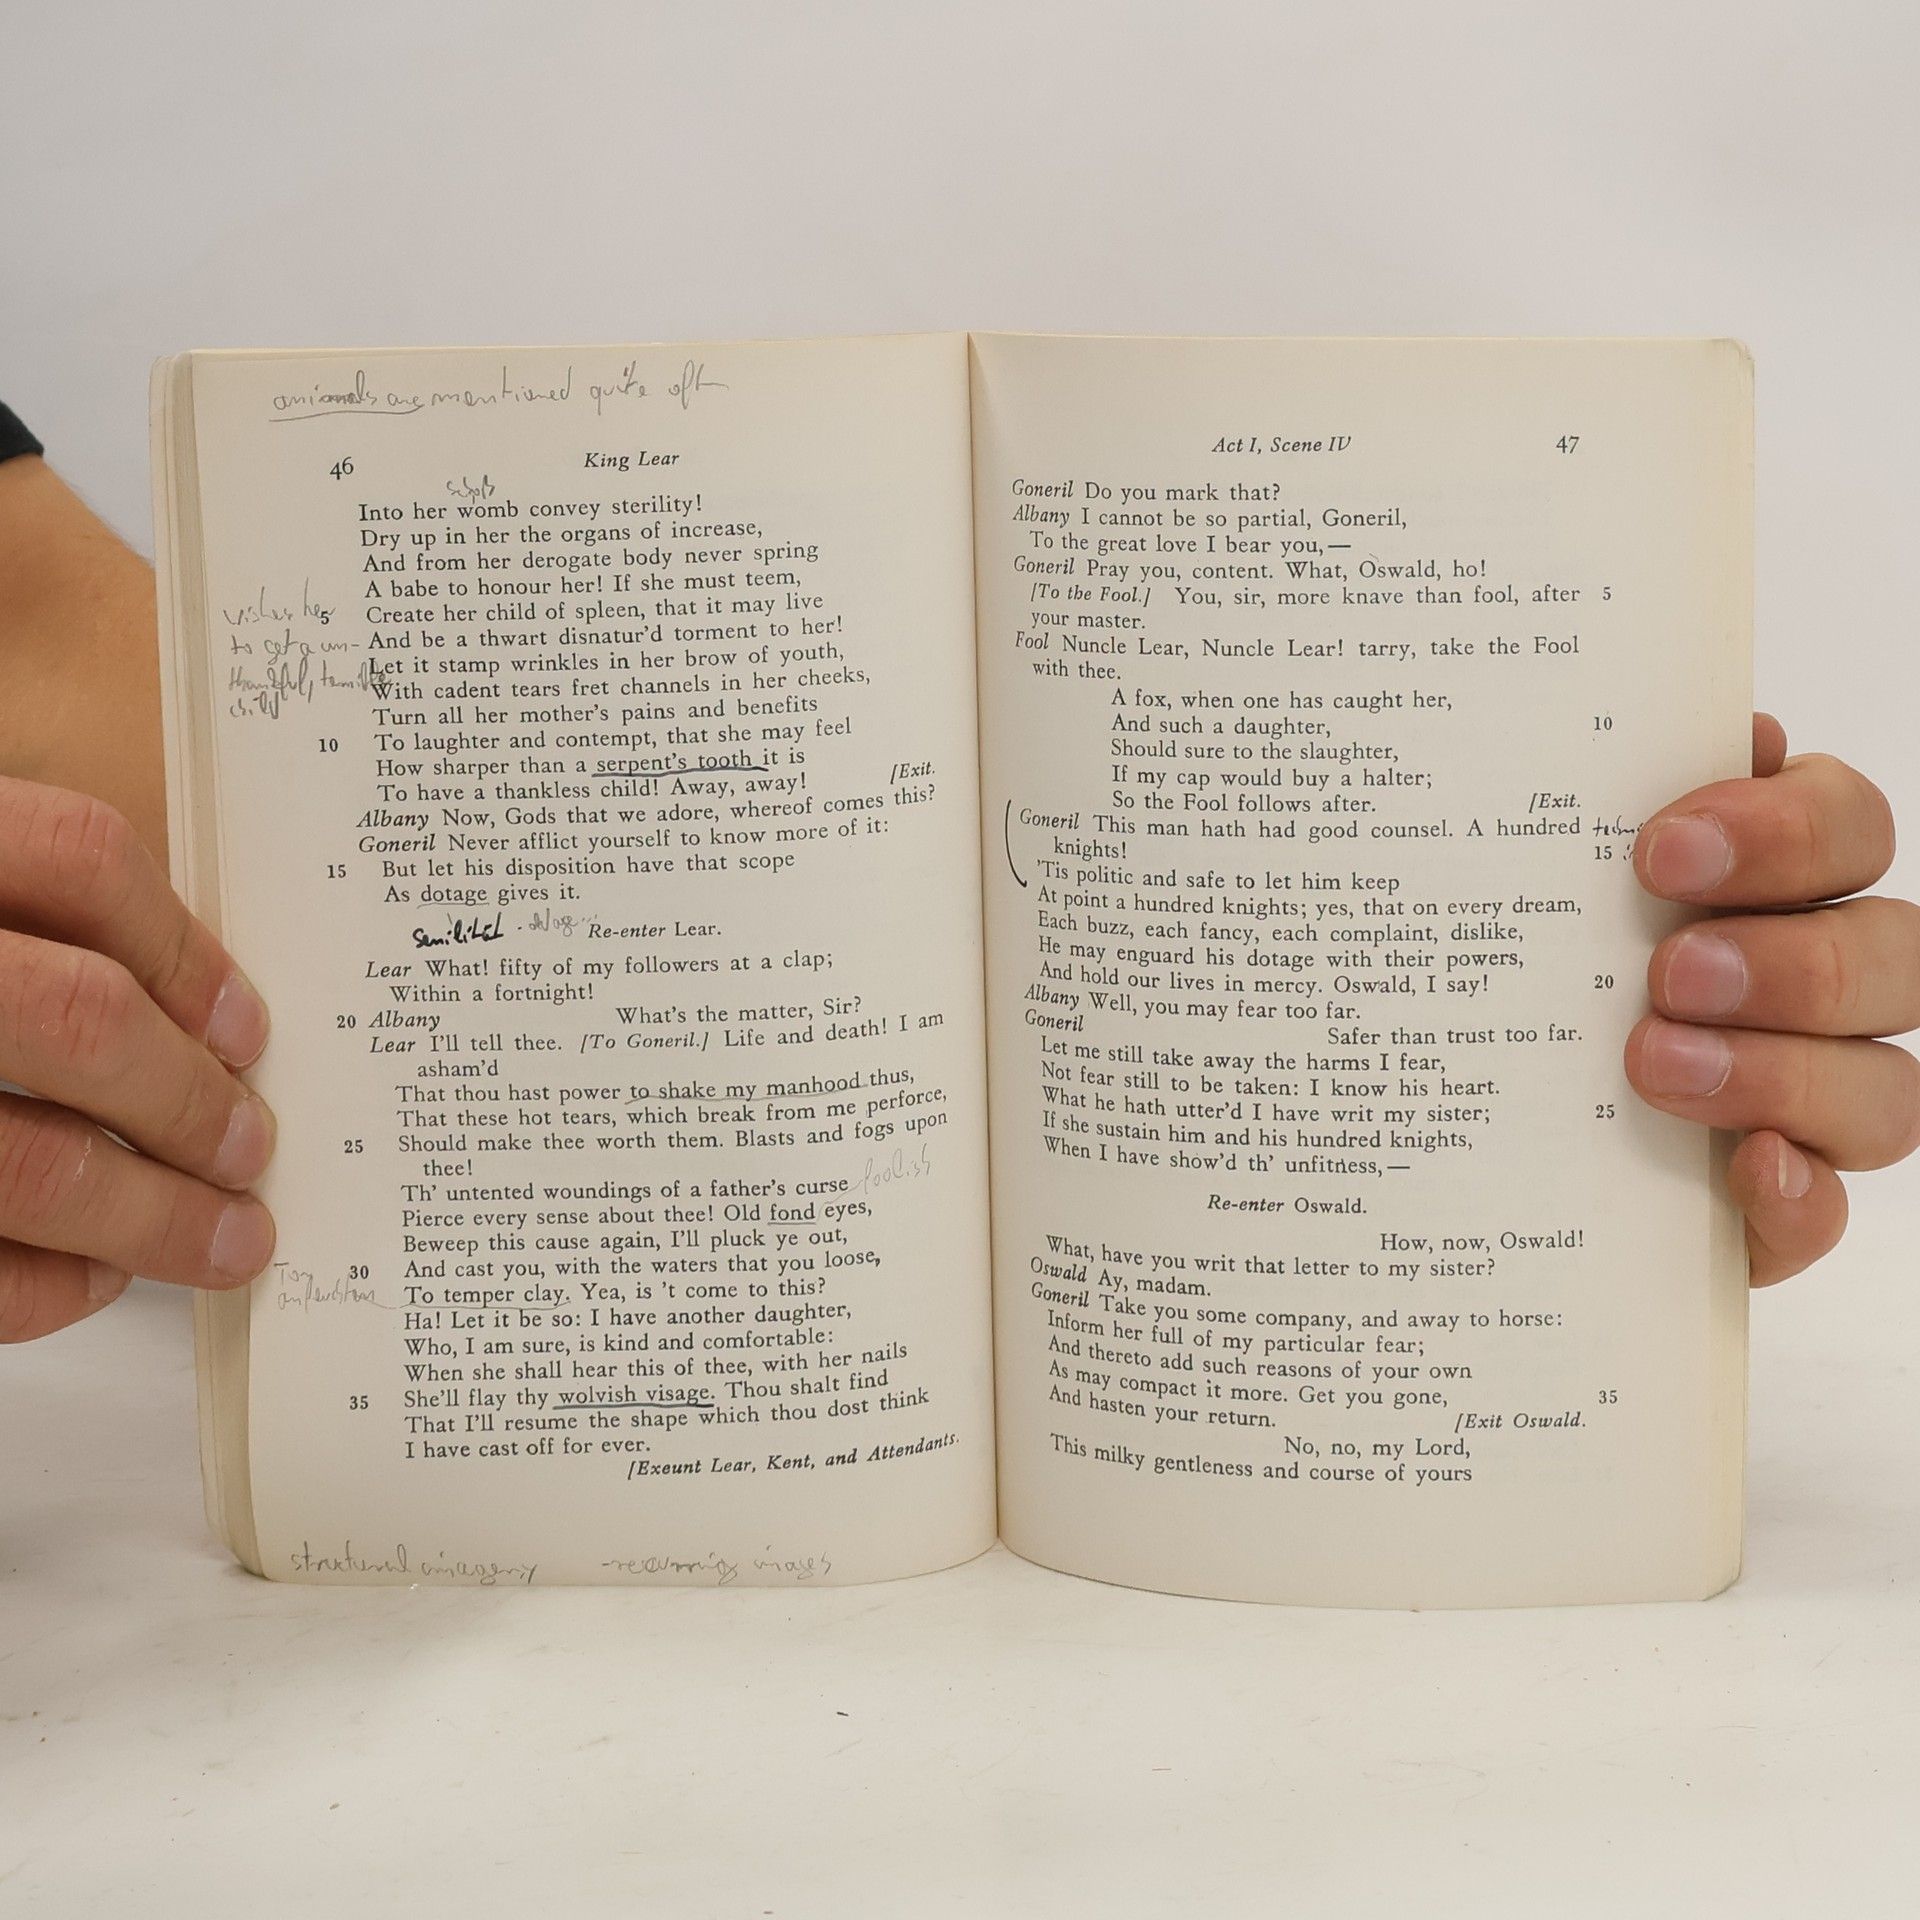 animals are mentioned quite often
46 King Lear
Schoß
Into her womb convey sterility!
Dry up in her the organs of increase,
And from her derogate body never spring
A babe to honour her! If she must teem,
wishes her
5 Create her child of spleen, that it may live
to get a un-
And be a thwart disnatur'd torment to her!
thankful, terrible
Let it stamp wrinkles in her brow of youth,
child
With cadent tears fret channels in her cheeks,
Turn all her mother's pains and benefits
10 To laughter and contempt, that she may feel
How sharper than a serpent's tooth it is
To have a thankless child! Away, away! [Exit.
Albany Now, Gods that we adore, whereof comes this?
Goneril Never afflict yourself to know more of it:
15 But let his disposition have that scope
As dotage gives it.
Senilität
Re-enter Lear.
Lear What! fifty of my followers at a clap;
Within a fortnight!
20 Albany What's the matter, Sir?
Lear I'll tell thee. [To Goneril.] Life and death! I am
asham'd
That thou hast power to shake my manhood thus,
That these hot tears, which break from me perforce,
25 Should make thee worth them. Blasts and fogs upon
thee!
foolish
Th' untented woundings of a father's curse
Pierce every sense about thee! Old fond eyes,
Beweep this cause again, I'll pluck ye out,
30 And cast you, with the waters that you loose,
To temper clay. Yea, is 't come to this?
Ha! Let it be so: I have another daughter,
Who, I am sure, is kind and comfortable:
When she shall hear this of thee, with her nails
35 She'll flay thy wolvish visage. Thou shalt find
That I'll resume the shape which thou dost think
I have cast off for ever.
[Exeunt Lear, Kent, and Attendants.
structural imagery -recurring images
Act I, Scene IV 47
Goneril Do you mark that?
Albany I cannot be so partial, Goneril,
To the great love I bear you,—
Goneril Pray you, content. What, Oswald, ho!
[To the Fool.] You, sir, more knave than fool, after 5
your master.
Fool Nuncle Lear, Nuncle Lear! tarry, take the Fool
with thee.
A fox, when one has caught her,
And such a daughter, 10
Should sure to the slaughter,
If my cap would buy a halter;
So the Fool follows after. [Exit.
Goneril This man hath had good counsel. A hundred
knights! 15
'Tis politic and safe to let him keep
At point a hundred knights; yes, that on every dream,
Each buzz, each fancy, each complaint, dislike,
He may enguard his dotage with their powers,
And hold our lives in mercy. Oswald, I say! 20
Albany Well, you may fear too far.
Goneril Safer than trust too far.
Let me still take away the harms I fear,
Not fear still to be taken: I know his heart.
What he hath utter'd I have writ my sister; 25
If she sustain him and his hundred knights,
When I have show'd th' unfitness,—
Re-enter Oswald.
How, now, Oswald!
What, have you writ that letter to my sister?
Oswald Ay, madam.
Goneril Take you some company, and away to horse:
Inform her full of my particular fear;
And thereto add such reasons of your own
As may compact it more. Get you gone, 35
And hasten your return. [Exit Oswald.
No, no, my Lord,
This milky gentleness and course of yours